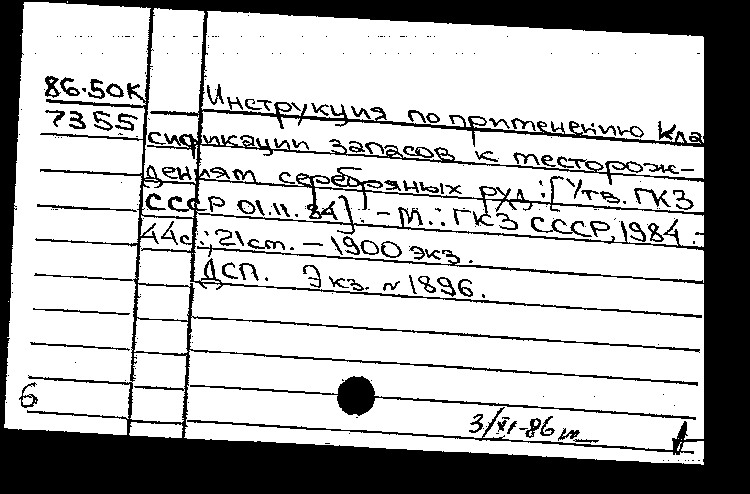 86-50К
7355
Инструкция по применению Кла
сификации запасов к месторож-
дениям серебряных руд: [Утв. ГКЗ
СССР 01.11.84]. – М.: ГКЗ СССР, 1984. –
44с.; 21см. – 1900 экз.
ДСП. Экз. №1896.
6
3/XI-86